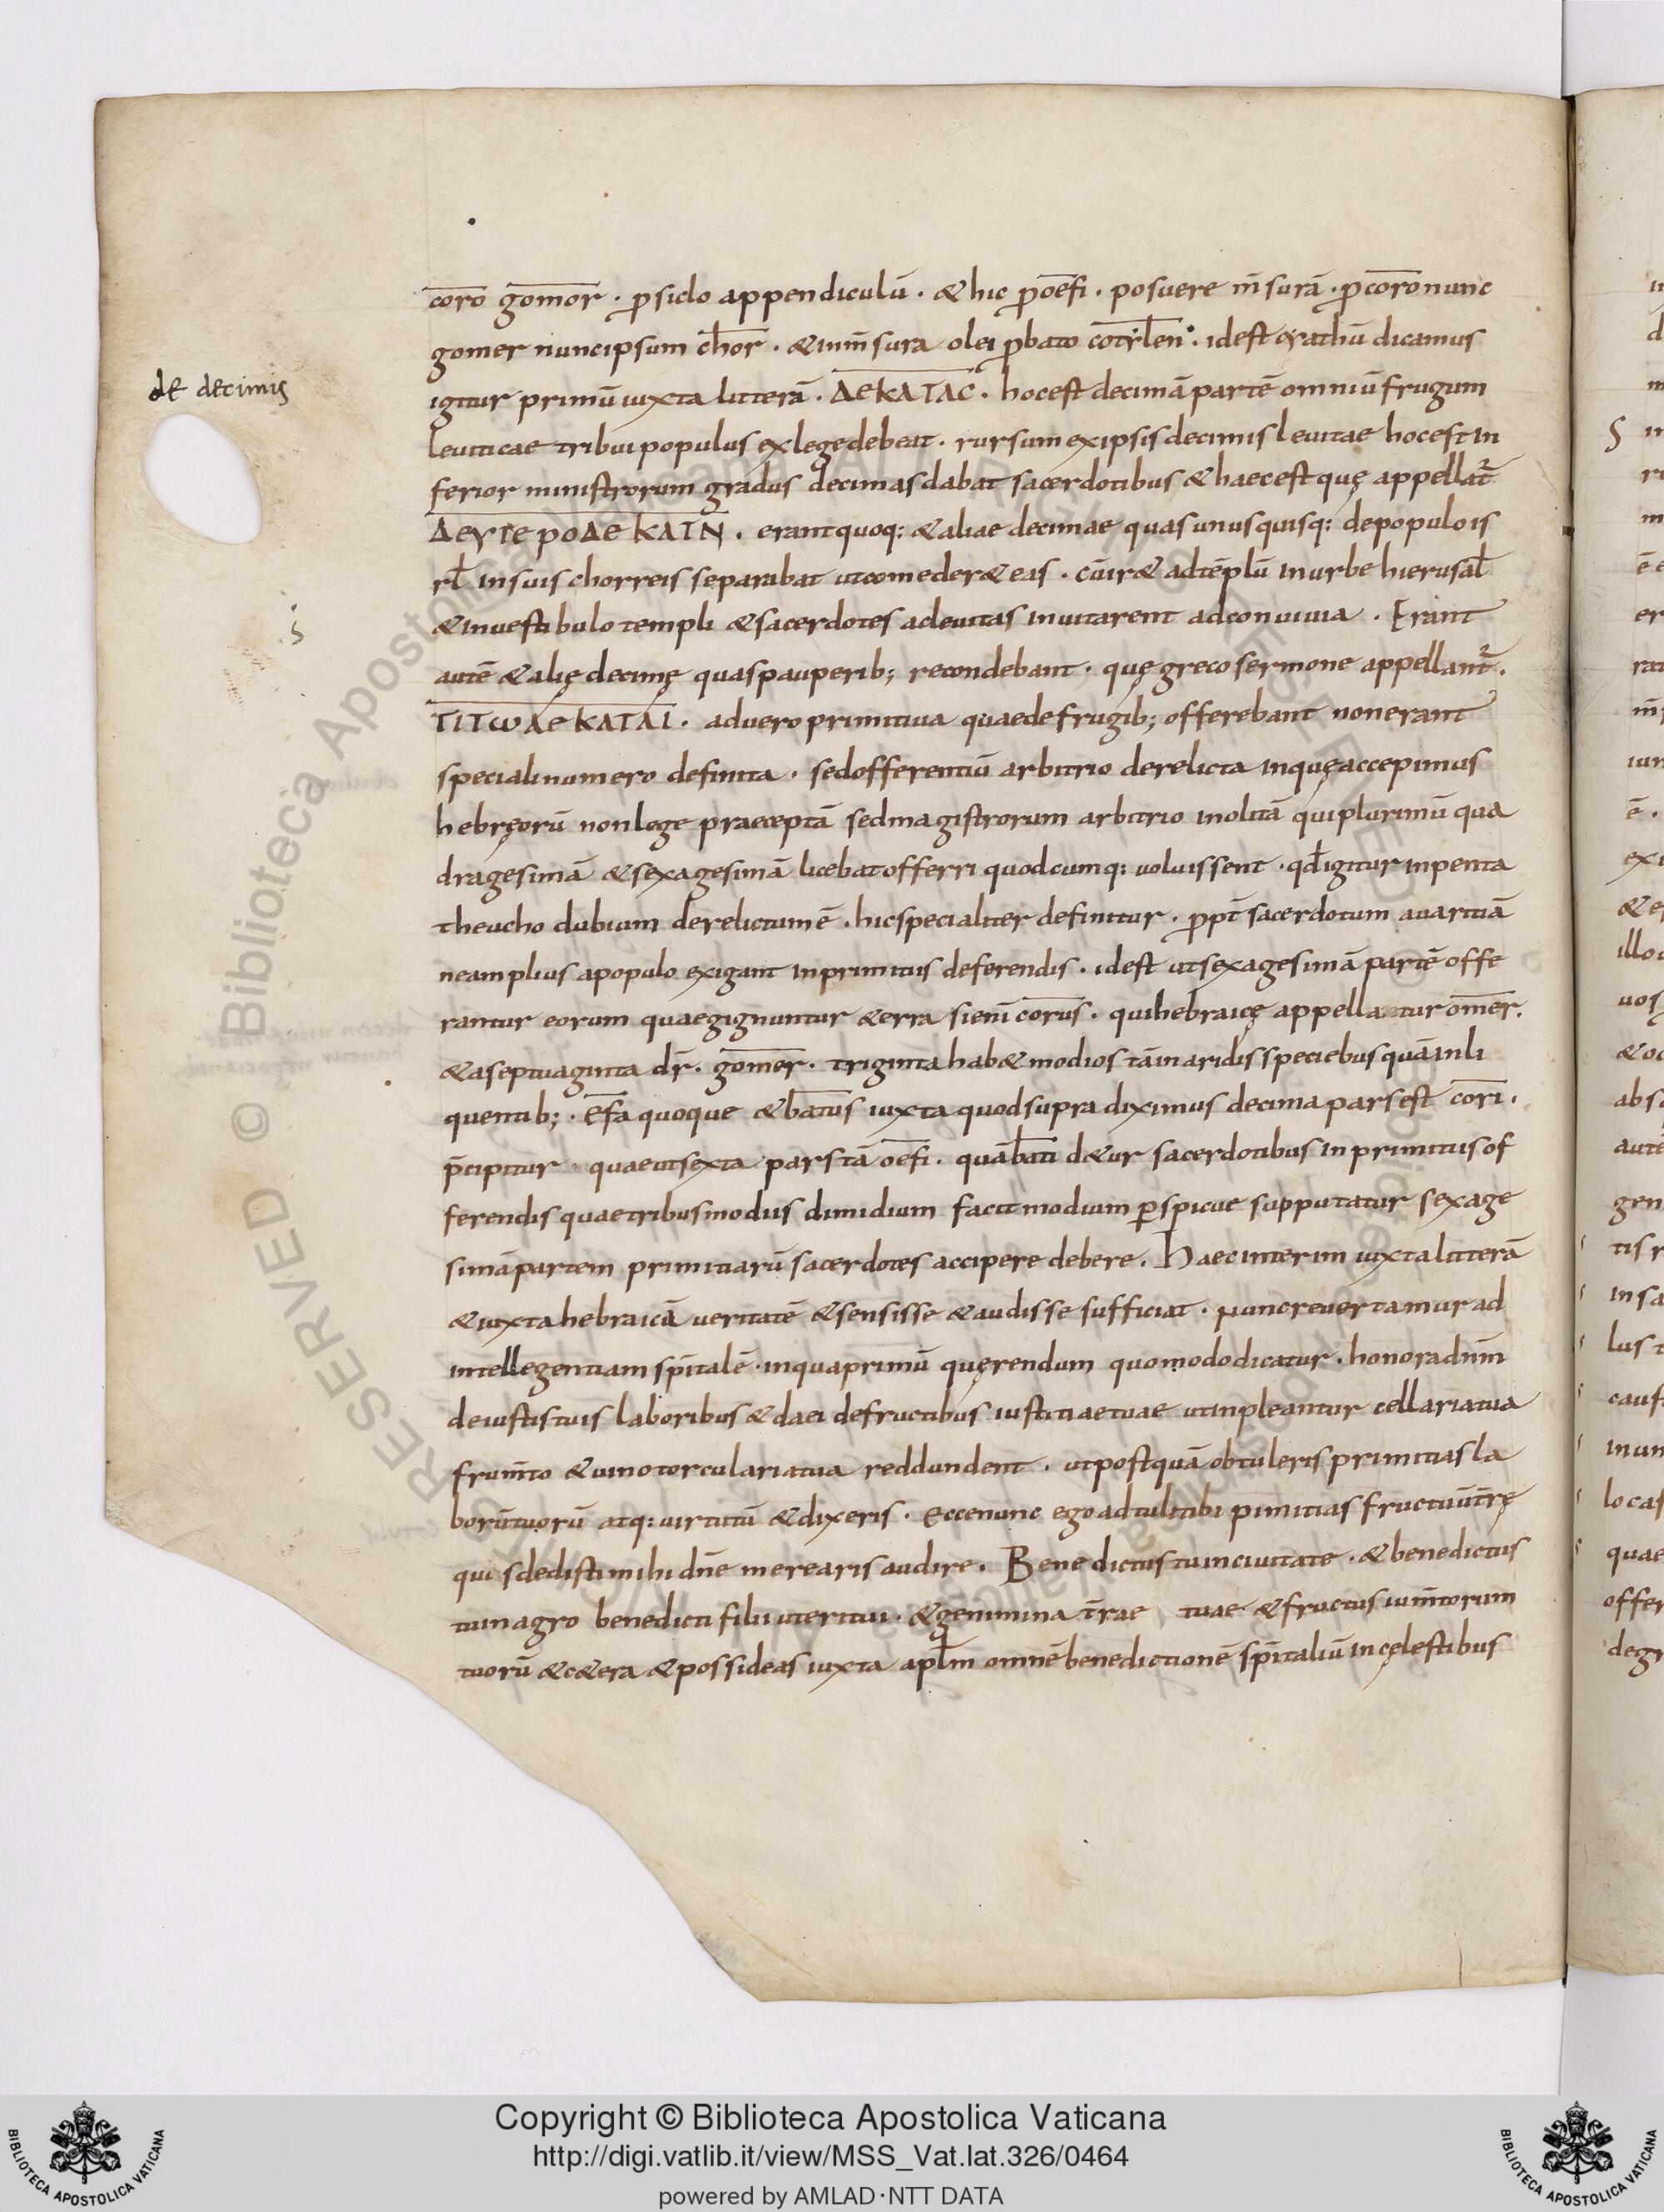 coro gomor · ꝑ siclo appendiculū · & hic ꝑ oefi · posuere m̄surā · ꝑ coro nunc
gomer nunc ipsum chor · & in m̄sura olei ꝑ bato cotylen · id est cyathū dicamus
de decimis
igitur primū iuxta litterā · ΔΕΚΑΤΑC · hoc est decimā partē omniū frugum
leuiticae tribui populus ex lege debeat · rursum ex ipsis decimis leuitae hoc est in
ferior ministrorum gradus decimas dabat sacerdotibus & haec est quę appellat̄
ΔΕΥΤΕΡΟΔΕΚΑΤΝ · erant quoq: & aliae decimae quas unusquisq: de populo is
rł in suis chorreis separabat ut comeder& eas · cū ir& ad tēplū in urbe hierusał
& in uestibulo templi & sacerdotes ac leuitas inuitarent ad conuiuia · Erant
autē & alię decimę quas pauperib; recondebant · quę greco sermone appellant̄ ·
ΤΙΤωΔΕΚΑΤΑΙ · ad uero primitiua quae de frugib; offerebant non erant
speciali numero definita · sed offerentiū arbitrio derelicta inquę accepimus
hebręorū non lege praeceptā sed magistrorum arbitrio inolitā qui plurimū qua
dragesimā & sexagesimā licebat offerri quodcumq: uoluissent · qđ igitur in penta
theucho dubium derelictum ē · hic specialiter definitur · ꝓpt̄ sacerdotum auaritiā
ne amplius a populo exigant in primitiis deferendis · id est ut sexagesimā partē offe
rantur eorum quae gignuntur & erra si enī corus · qui hebraicę appellatur omer ·
& a septuaginta dr̄ · gomer · triginta hab& modios tā in aridis speciebus quā in li
quentib; · Efa quoque & batus iuxta quod supra diximus decima pars est cori ·
p̄cipitur · quae ut sexta pars tā oefi · quā bati d&ur sacerdotibus in primitiis of
ferendis quae tribus modiis dimidium facit modium ꝑspicue supputatur sexage
simā partem primitiarū sacerdotes accipere debere · Haec interim iuxta litterā
& iuxta hebraicā ueritatē & sensisse & audisse sufficiat · Nunc reuertamur ad
intellegentiam sp̄italē · in qua primū quęrendum quomodo dicatur · honora dn̄m
de iustis tuis laboribus & da ei de fructibus iustitiae tuae ut inpleantur cellaria tua
frum̄to & uino torcularia tua reddundent · ut postquā obtuleris primitias la
borū tuorū atq: uirtutū & dixeris · Ecce nunc ego adtuli tibi pimitias fructuū t̄rę
quis dedisti mihi dn̄e merearis audire · Benedictus tu in ciuitate · & benedictus
tu in agro benedicti filii uteri tui · & genimina t̄rae tuae & fructus ium̄torum
tuorū & c&era & possideas iuxta apłm omnē benedictionē sp̄italiū in cęlestibus
Copyright © Biblioteca Apostolica Vaticana
http://digi.vatlib.it/view/MSS_Vat.lat.326/0464
powered by AMLAD·NTT DATA
BIBLIOTECA APOSTOLICA VATICANA
BIBLIOTECA APOSTOLICA VATICANA